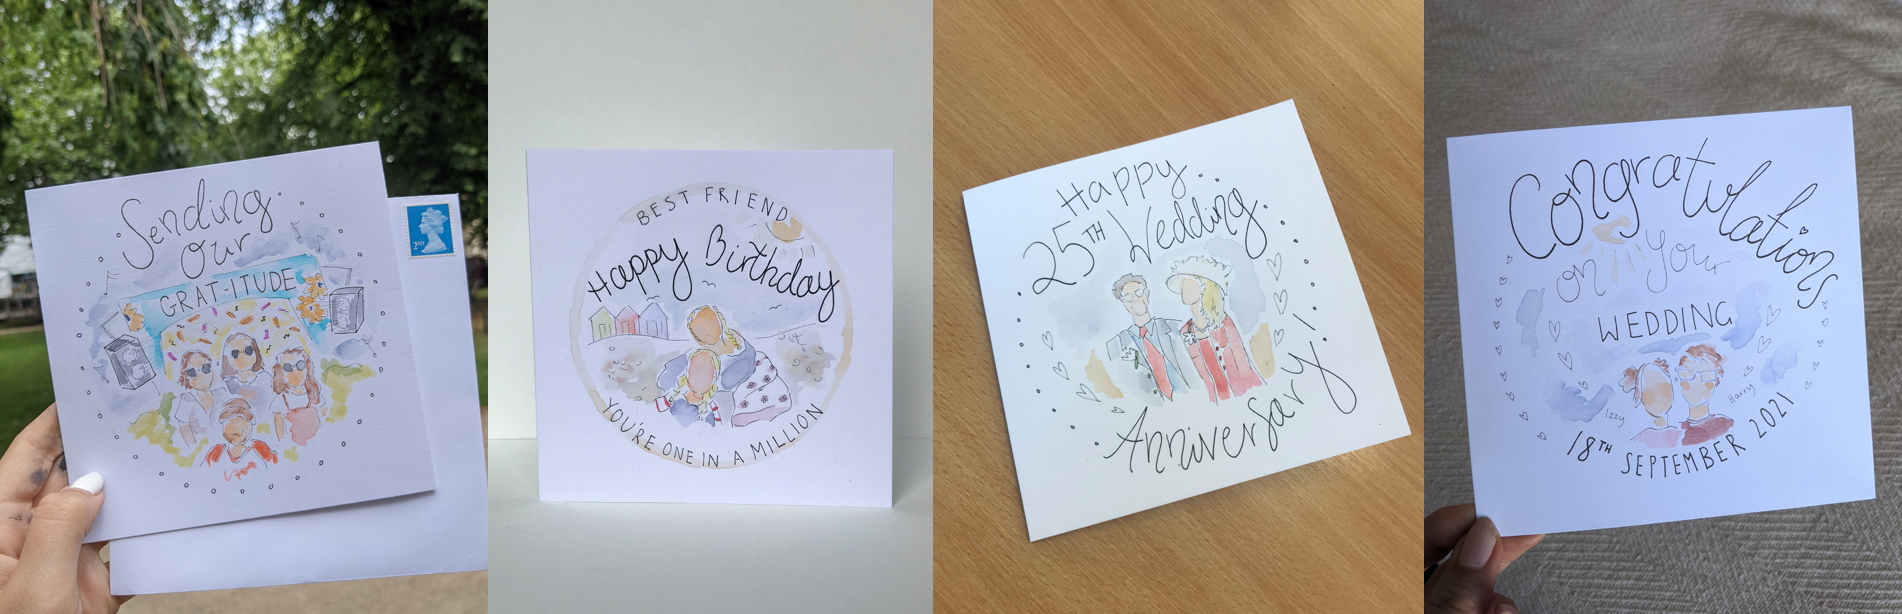 Sending
our
GRAT-ITUDE
2ND
BEST FRIEND
Happy Birthday
YOU'RE ONE IN A MILLION
Happy
25TH Wedding
Anniversary
Congratulations
on your
WEDDING
Izzy
Harry
18TH SEPTEMBER 2021